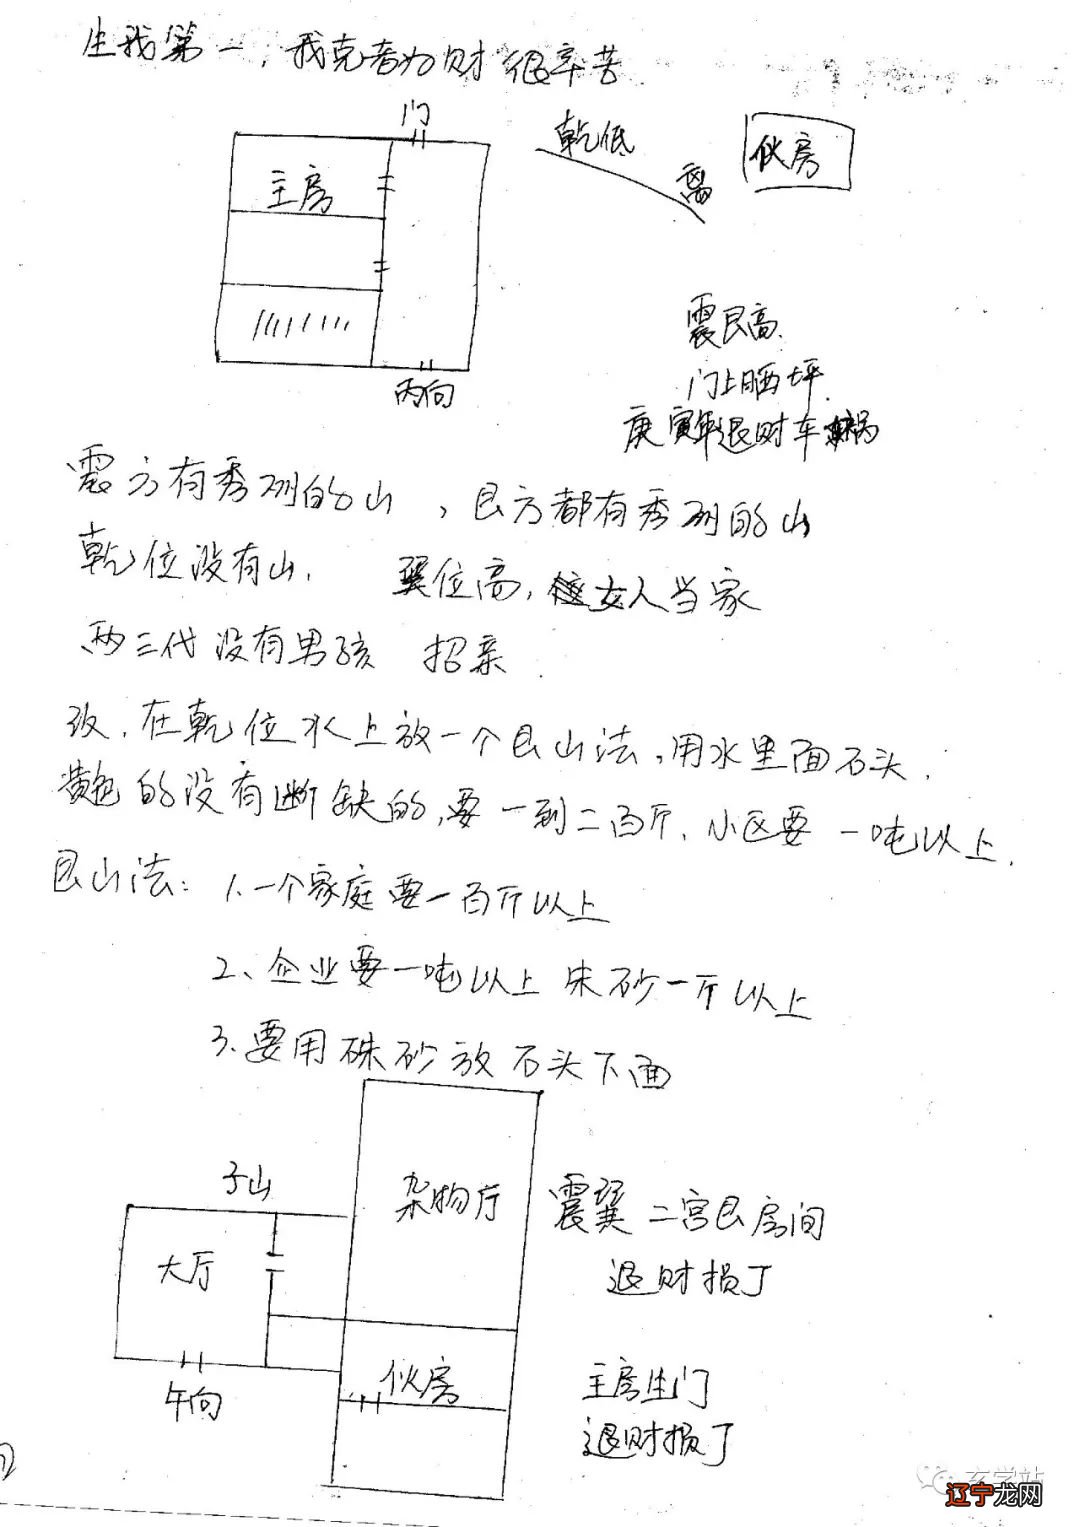 生我第一，我克者为财 很辛苦
门
主房
丙向
乾低
离
伙房
震艮高
门上晒坪
庚寅年退财车祸
震方有秀丽的山，艮方都有秀丽的山
乾位没有山. 巽位高，女人当家
两三代没有男孩 招亲.
改.在乾位水上放一个艮山法，用水里面石头.
黄色的没有断缺的，要一到二百斤.小区要一吨以上.
艮山法：1.一个家庭要一百斤以上
2、企业要一吨以上 朱砂一斤以上
3.要用硃砂放石头下面
子山
大厅
午向
杂物厅
伙房
震巽二宫艮房间
退财损丁
主房生门
退财损丁
玄学站
辽宁龙网